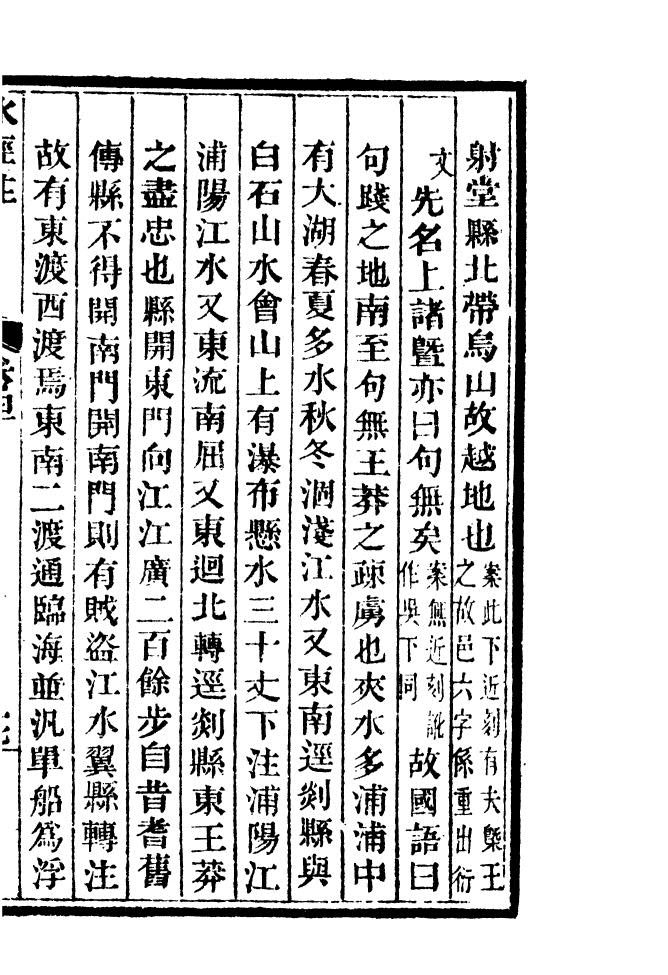 射堂縣北帶烏山故越地也案此下近刻有夫槩王之故邑六字係重出衍
文先名上諸暨亦曰句無矣案無近刻訛作吳下同故國語曰
句踐之地南至句無王莽之疎虜也夾水多浦浦中
有大湖春夏多水秋冬涸淺江水又東南逕剡縣與
白石山水會山上有瀑布懸水三十丈下注浦陽江
浦陽江水又東流南屈又東迴北轉逕剡縣東王莽
之盡忠也縣開東門向江江廣二百餘步自昔耆舊
傳縣不得開南門開南門則有賊盜江水翼縣轉注
故有東渡西渡焉東南二渡通臨海並汎單船爲浮
水經注